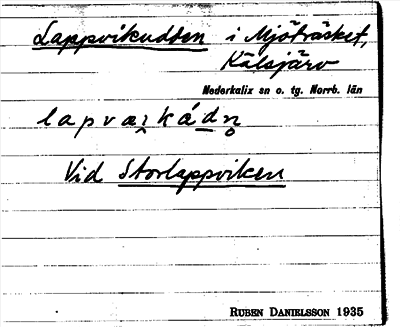 Lappvikudden i Mjöträsket,
Kälsjärv
Nederkalix sn o. tg. Norrb. län
lapvaɪkádn̥
Vid Storlappviken
RUBEN DANIELSSON 1935